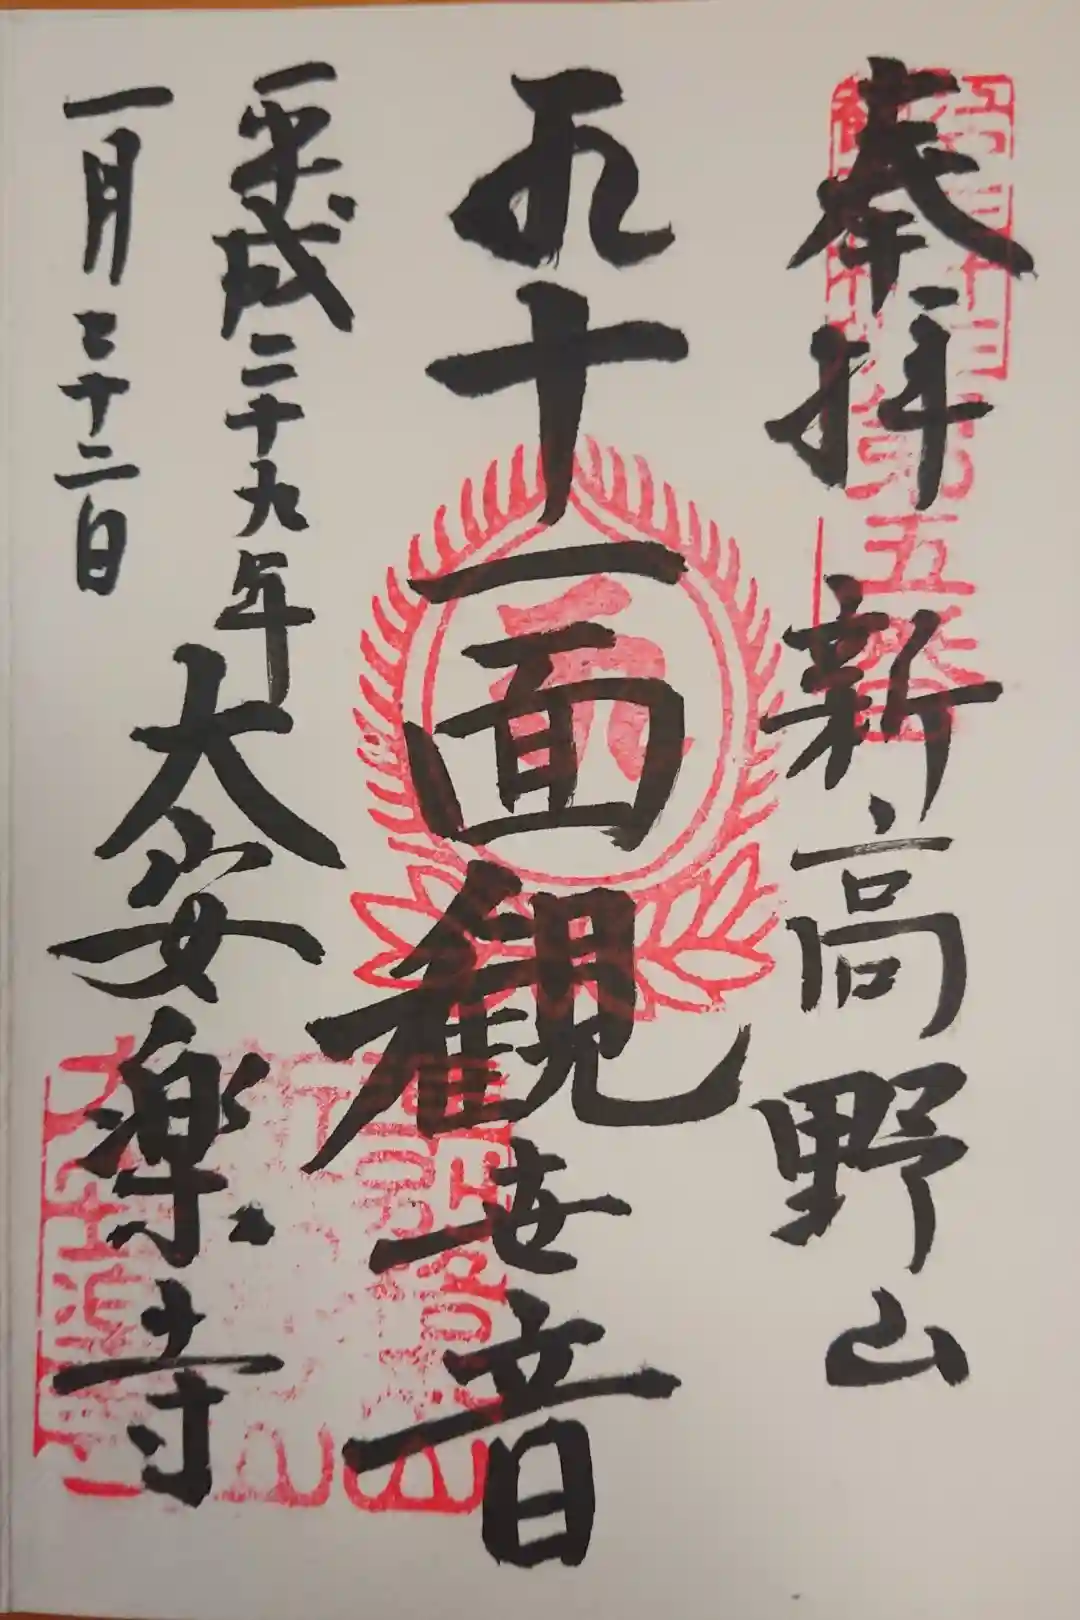 奉拝 新高野山
第五番
十一面観世音
平成二十九年
一月二十二日
大安楽寺